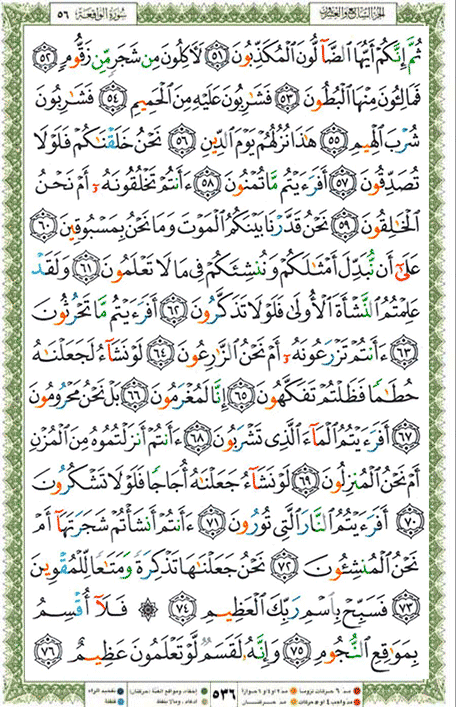 الجزء السابع والعشرون سورة الواقعة ٥٦
ثُمَّ إِنَّكُمْ أَيُّهَا ٱلضَّآلُّونَ ٱلْمُكَذِّبُونَ ٥١ لَـَٔاكِلُونَ مِن شَجَرٍ مِّن زَقُّومٍ ٥٢
فَمَالِـُٔونَ مِنْهَا ٱلْبُطُونَ ٥٣ فَشَـٰرِبُونَ عَلَيْهِ مِنَ ٱلْحَمِيمِ ٥٤ فَشَـٰرِبُونَ
شُرْبَ ٱلْهِيمِ ٥٥ هَـٰذَا نُزُلُهُمْ يَوْمَ ٱلدِّينِ ٥٦ نَحْنُ خَلَقْنَـٰكُمْ فَلَوْلَا
تُصَدِّقُونَ ٥٧ أَفَرَءَيْتُم مَّا تُمْنُونَ ٥٨ ءَأَنتُمْ تَخْلُقُونَهُۥٓ أَمْ نَحْنُ
ٱلْخَـٰلِقُونَ ٥٩ نَحْنُ قَدَّرْنَا بَيْنَكُمُ ٱلْمَوْتَ وَمَا نَحْنُ بِمَسْبُوقِينَ ٦٠
عَلَىٰٓ أَن نُّبَدِّلَ أَمْثَـٰلَكُمْ وَنُنشِئَكُمْ فِى مَا لَا تَعْلَمُونَ ٦١ وَلَقَدْ
عَلِمْتُمُ ٱلنَّشْأَةَ ٱلْأُولَىٰ فَلَوْلَا تَذَكَّرُونَ ٦٢ أَفَرَءَيْتُم مَّا تَحْرُثُونَ
٦٣ ءَأَنتُمْ تَزْرَعُونَهُۥٓ أَمْ نَحْنُ ٱلزَّٰرِعُونَ ٦٤ لَوْ نَشَآءُ لَجَعَلْنَـٰهُ
حُطَـٰمًا فَظَلْتُمْ تَفَكَّهُونَ ٦٥ إِنَّا لَمُغْرَمُونَ ٦٦ بَلْ نَحْنُ مَحْرُومُونَ
٦٧ أَفَرَءَيْتُمُ ٱلْمَآءَ ٱلَّذِى تَشْرَبُونَ ٦٨ ءَأَنتُمْ أَنزَلْتُمُوهُ مِنَ ٱلْمُزْنِ
أَمْ نَحْنُ ٱلْمُنزِلُونَ ٦٩ لَوْ نَشَآءُ جَعَلْنَـٰهُ أُجَاجًا فَلَوْلَا تَشْكُرُونَ
٧٠ أَفَرَءَيْتُمُ ٱلنَّارَ ٱلَّتِى تُورُونَ ٧١ ءَأَنتُمْ أَنشَأْتُمْ شَجَرَتَهَآ أَمْ
نَحْنُ ٱلْمُنشِـُٔونَ ٧٢ نَحْنُ جَعَلْنَـٰهَا تَذْكِرَةً وَمَتَـٰعًا لِّلْمُقْوِينَ
٧٣ فَسَبِّحْ بِٱسْمِ رَبِّكَ ٱلْعَظِيمِ ٧٤ ۞ فَلَآ أُقْسِمُ
بِمَوَٰقِعِ ٱلنُّجُومِ ٧٥ وَإِنَّهُۥ لَقَسَمٌ لَّوْ تَعْلَمُونَ عَظِيمٌ ٧٦
مد ٦ حركات لزوماً مد ٢ او ٤ او ٦ جوازاً ٥٣٦ إخفاء، ومواقع الغنة (حركتان) تفخيم الراء
مد واجب ٤ او ٥ حركات مد حركتان إدغام، ومالا يلفظ قلقلة